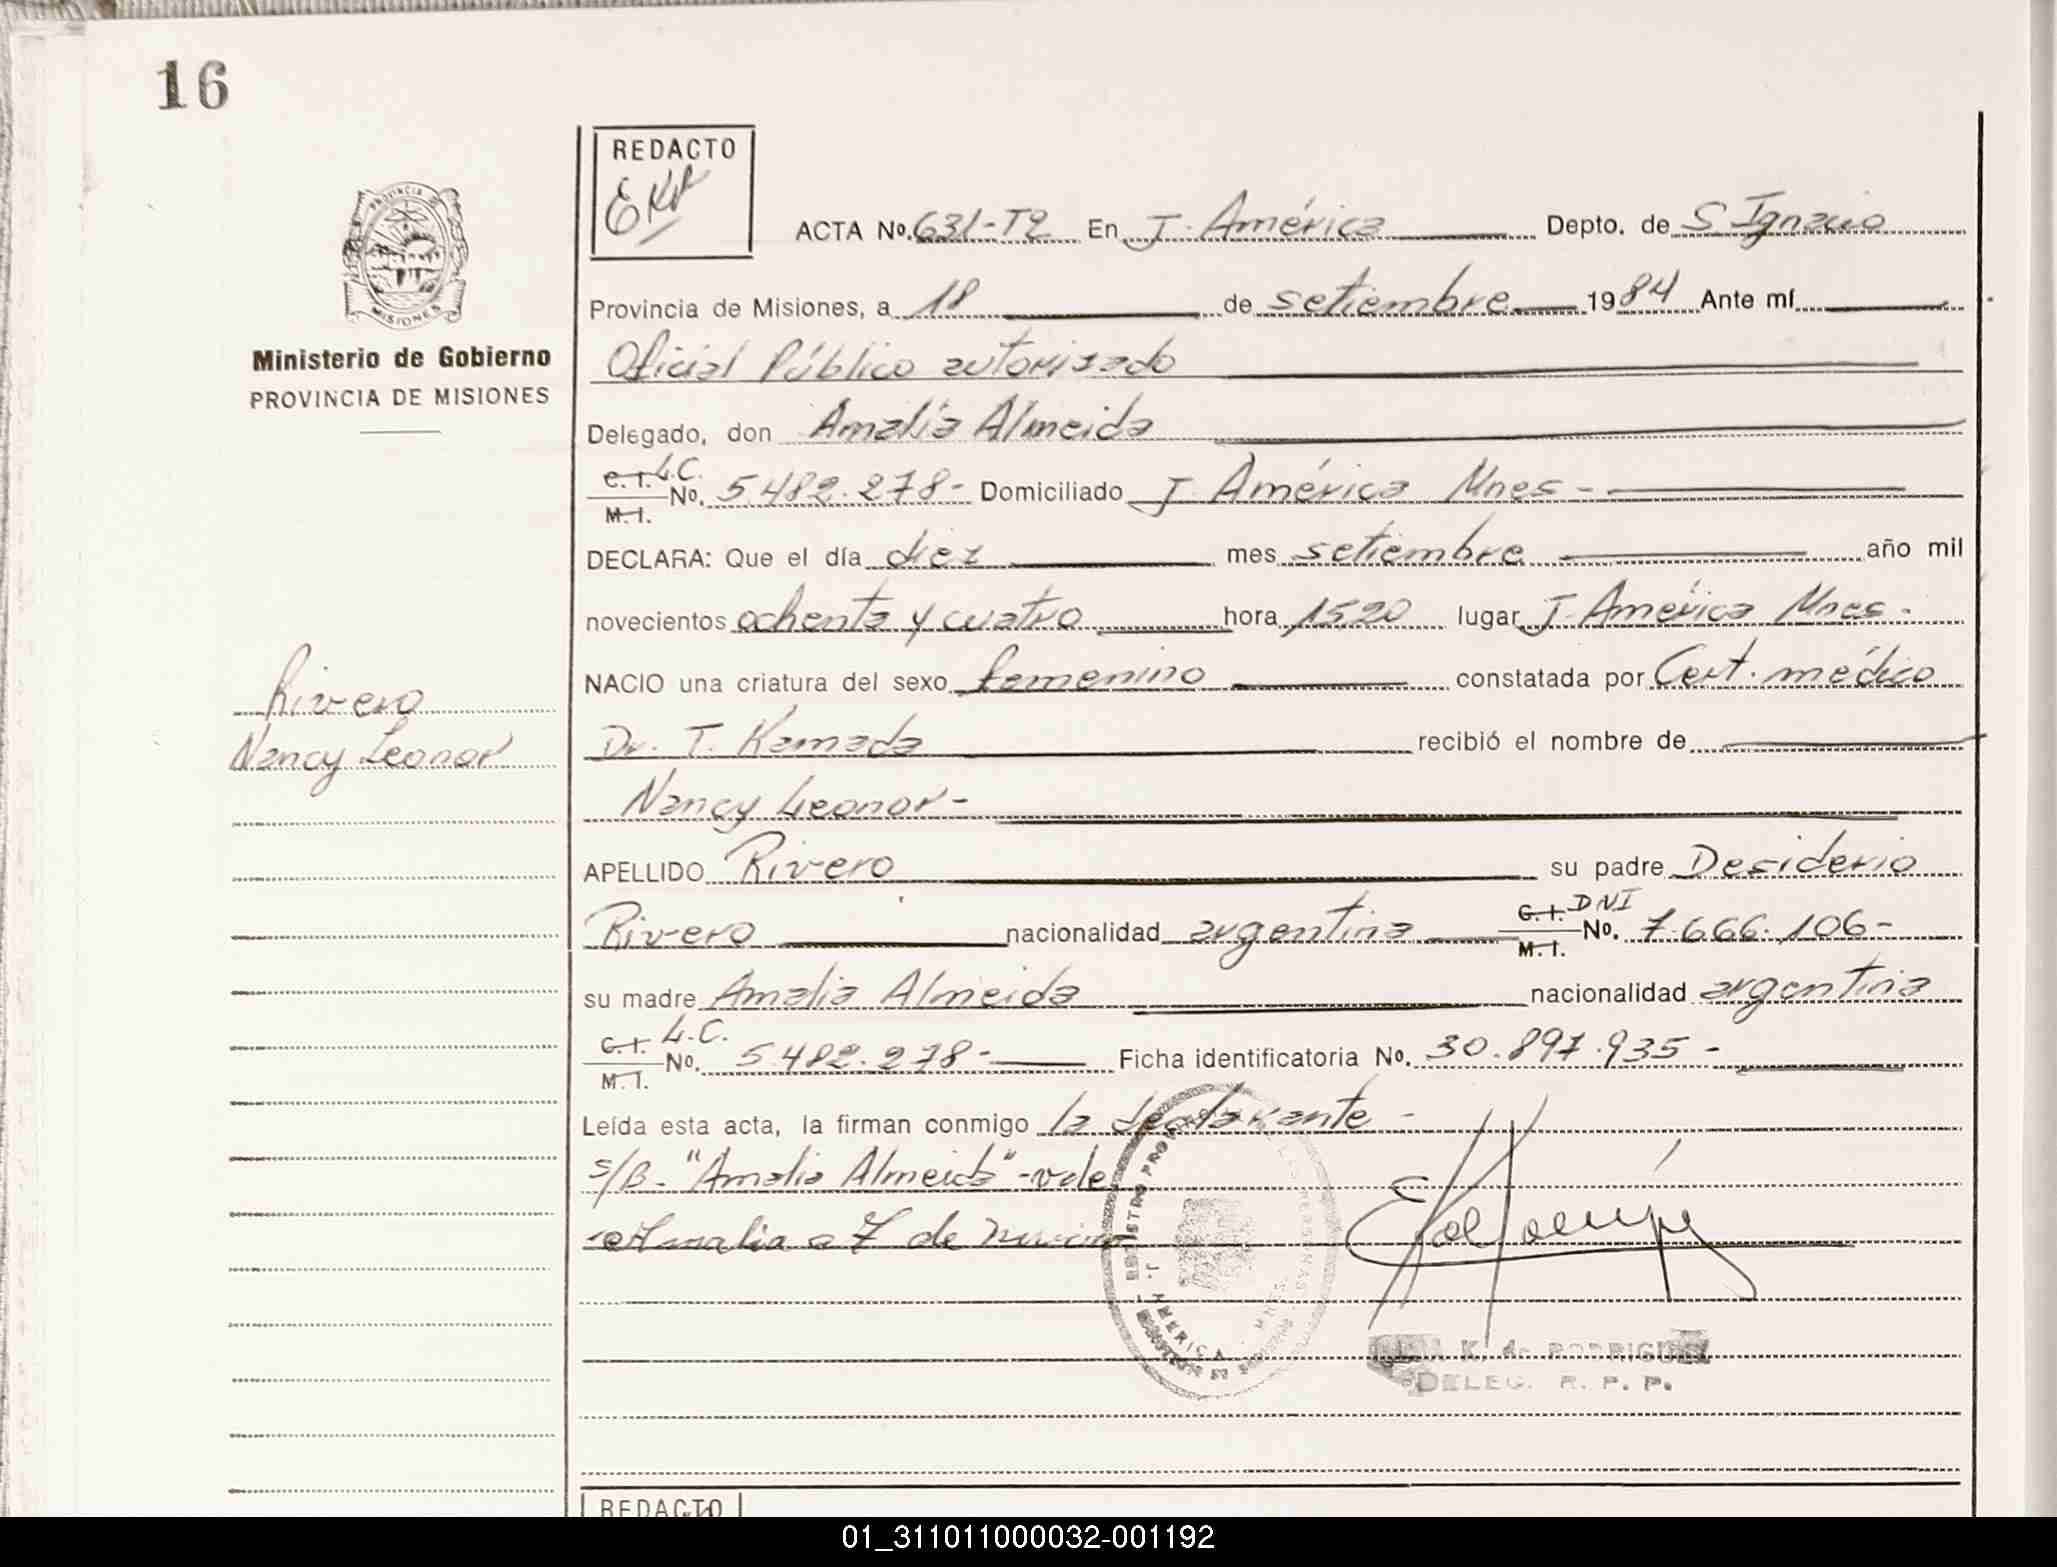 16
REDACTO
PROVINCIA
MISIONES
Ministerio de Gobierno
PROVINCIA DE MISIONES
ACTA No. 631-T2 En J. América Depto. de S Ignacio
Provincia de Misiones, a 18 de setiembre 1984 Ante mí
Oficial Público autorizado
Delegado, don Amalia Almeida
C.I. L.C. M.I. No. 5.482.278- Domiciliado J. América Mnes-
DECLARA: Que el día diez mes setiembre año mil
novecientos ochenta y cuatro hora 15,20 lugar J. América Mnes-
NACIO una criatura del sexo femenino constatada por Cert. médico
Dr. T. Kamada recibió el nombre de
Nancy Leonor-
APELLIDO Rivero su padre Desiderio
Rivero nacionalidad argentina C.I. DNI M.I. No. 7.666.106-
su madre Amalia Almeida nacionalidad argentina
C.I. L.C. M.I. No. 5.482.278- Ficha identificatoria No. 30.897.935-
Leída esta acta, la firman conmigo la declarante-
s/B- "Amalia Almeida"-vale
Amalia a de
Rivero
Nancy Leonor
J. AMERICA MNES.
K. de RODRIGUEZ
DELEG. R. P. P.
REDACTO
01_311011000032-001192